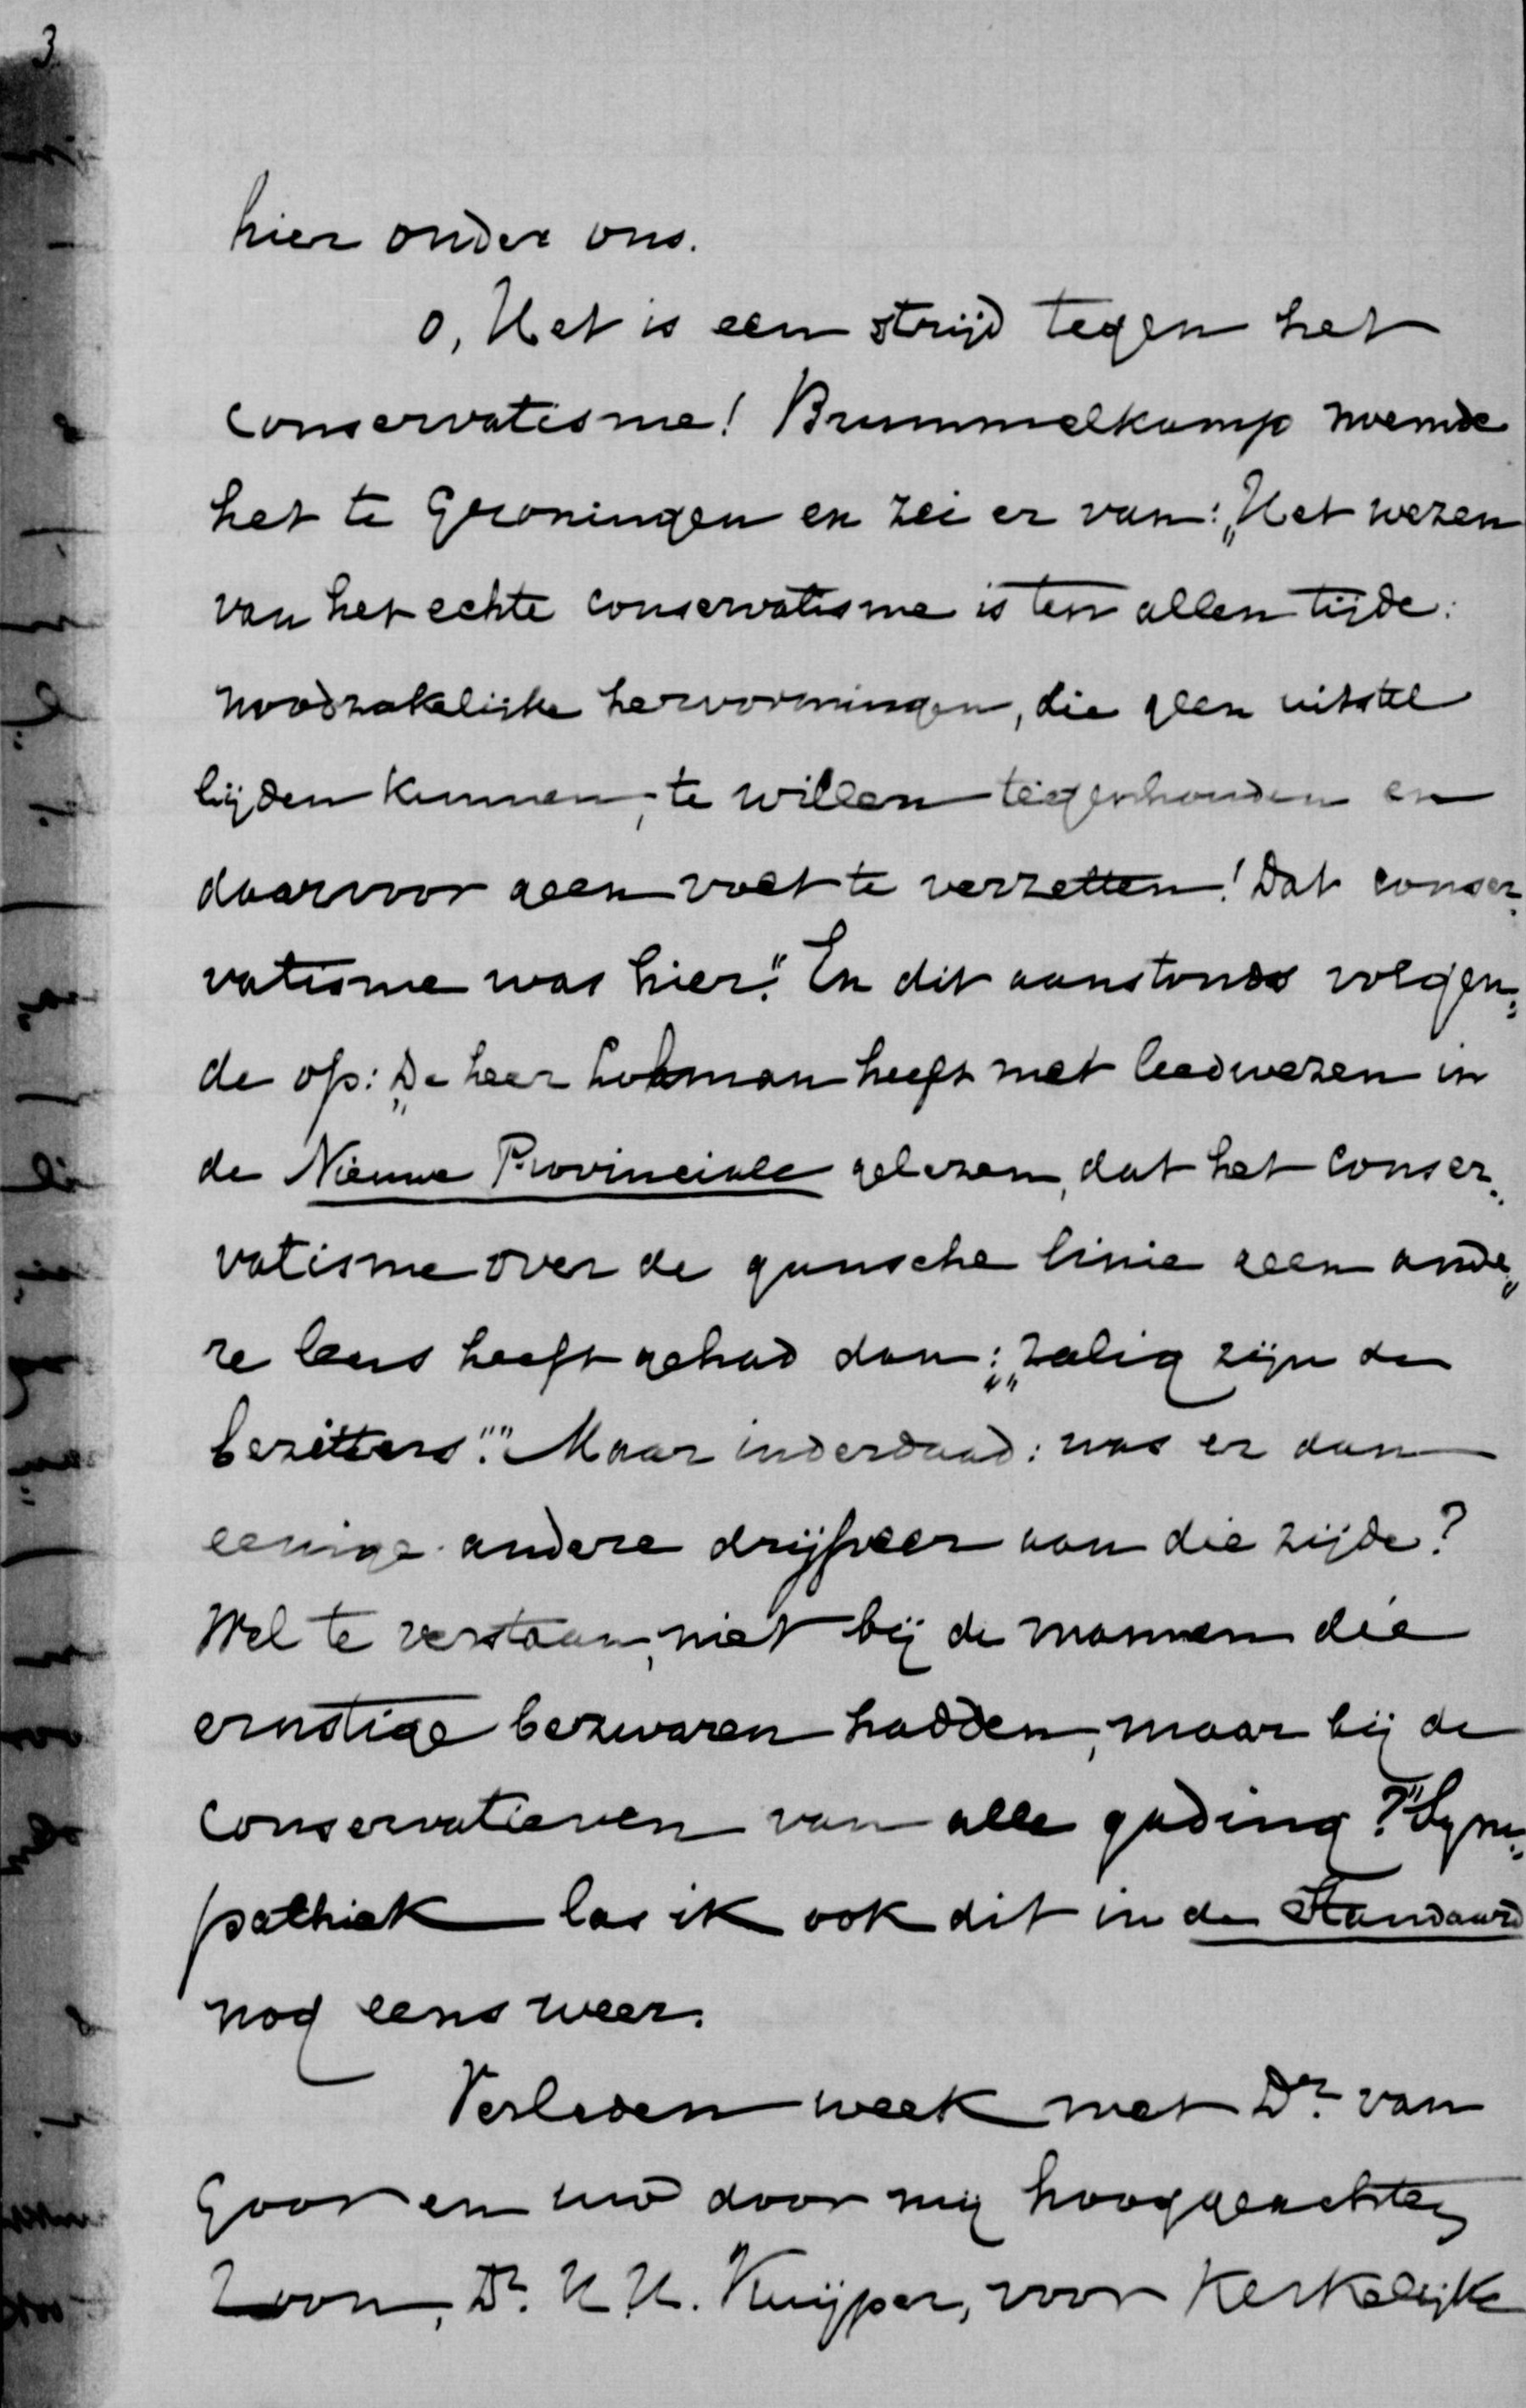 3
hier onder ons.
O, Het is een strijd tegen het
conservatisme! Brummelkamp noemde
het te Groningen en zei er van: „Het wezen
van het echte conservatisme is ten allen tijde:
noodzakelijke hervormingen, die geen uitstel
lijden kunnen, te willen tegenhouden en
daarvoor geen voet te verzetten! Dat conser„
vatisme was hier." En dit aanstonds volgen„
de op: „De heer Lohman heeft met leedwezen in
de Nieuwe Provinciale gelezen, dat het conser„
vatisme over de gansche linie geen ande„
re leus heeft gehad dan: „„zalig zijn de
bezitters"". Maar inderdaad: was er dan
eenige andere drijfveer aan die zijde?
Wel te verstaan, niet bij de mannen die
ernstige bezwaren hadden, maar bij de
conservatieven van alle gading?" Sym„
pathiek las ik ook dit in de Standaard
nog eens weer.
Verleden week met Dr. van
Goor en uw door mij hooggeachten
Zoon, Dr. H. H. Kuijper, voor Kerkelijke